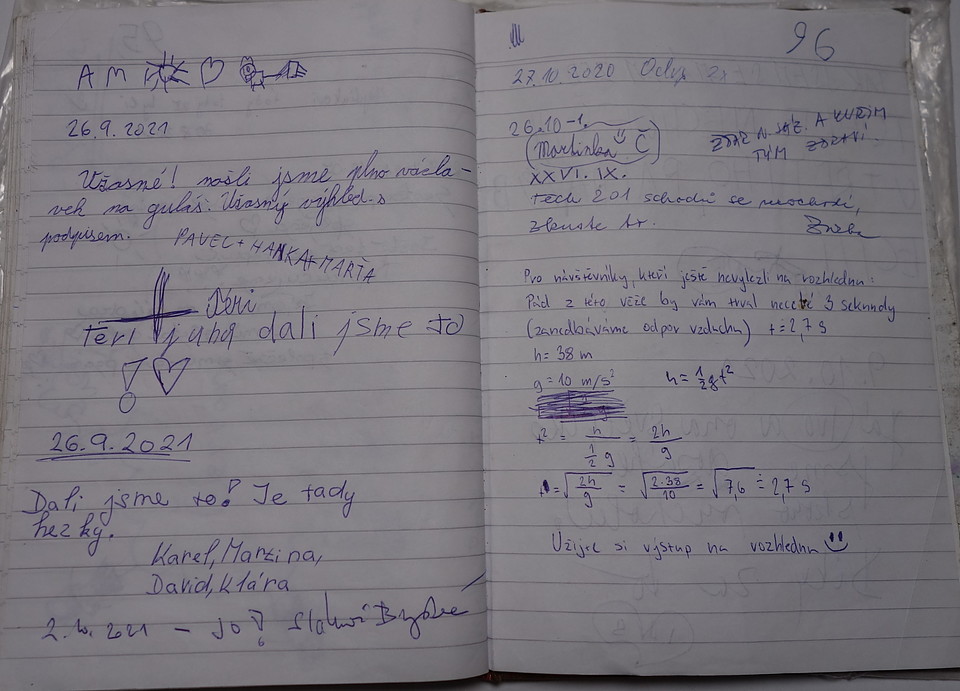 A M
26.9.2021
Úžasné! našli jsme plno václa-
vek na guláš. Úžasný výhled. s
podpisem. PAVEL + HANKA + MARŤA
Téri
Teri juhq dali jsme to
!
26.9.2021
Dali jsme to! Je tady
hezky.
Karel, Martina,
David, Klára
2.10.2021 – JO!
96
27.10.2020
26.10-1.
Martinka Č
XXVI. IX.
ZDAR A KUŘIM
TÝM ZDRAVÍ
Těch 201 schodů se
zkuste to.
Pro návštěvníky, kteří ještě nevylezli na rozhlednu:
Pád z této věže by vám trval necelé 3 sekundy
(zanedbáváme odpor vzduchu) t = 2,7 s
h = 38 m
g = 10 m/s² h = 1/2 g t²
t² = h / (1/2 g) = 2h/g
t = √(2h/g) = √(2·38/10) = √7,6 ≐ 2,7 s
Užijte si výstup na rozhlednu